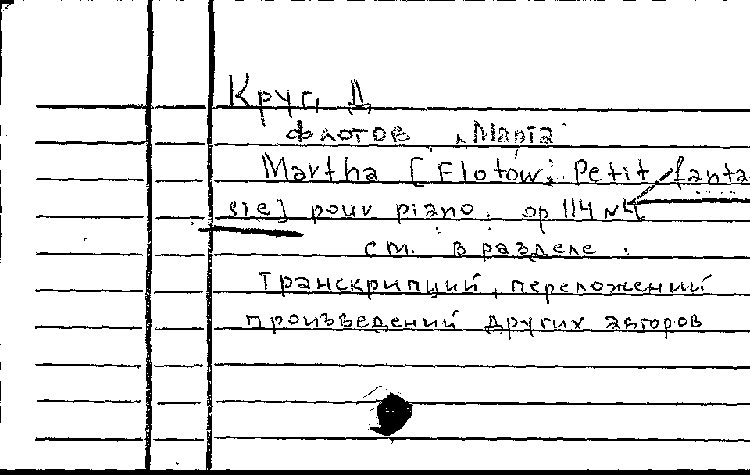 Круг, Д
Флотов „Марта"
Martha [Flotow; Petit fanta
sie] pour piano. op 114 №4
см. в разделе:
Транскрипций, переложений
произведений других авторов